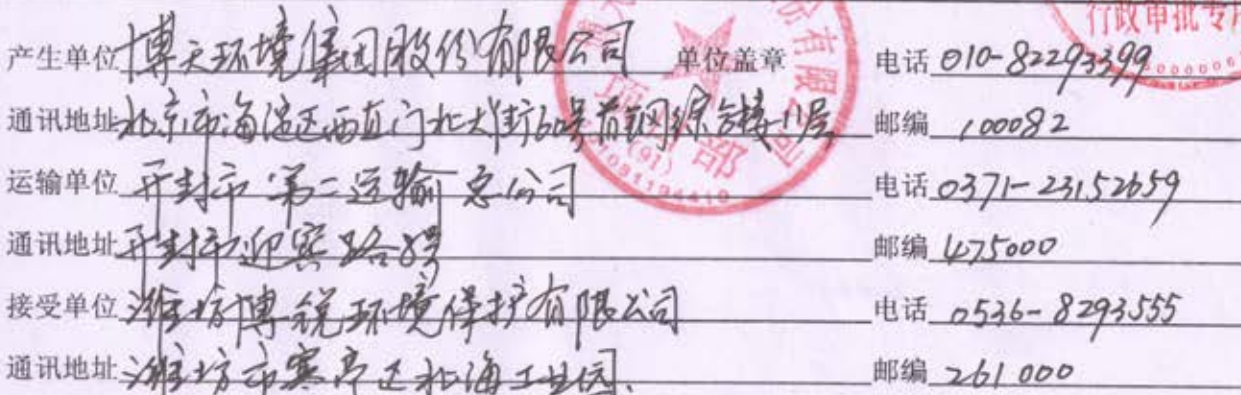 行政审批专用
产生单位 博天环境集团股份有限公司 单位盖章 电话 010-82293399
通讯地址 北京市海淀区西直门北大街60号首钢综合楼11层 邮编 100082
运输单位 开封市第二运输总公司 电话 0371-23152659
通讯地址 开封市迎宾路8号 邮编 475000
接受单位 潍坊博锐环境保护有限公司 电话 0536-8293555
通讯地址 潍坊市寒亭区北海工业园. 邮编 261000
份有限公司
项目部
(91)